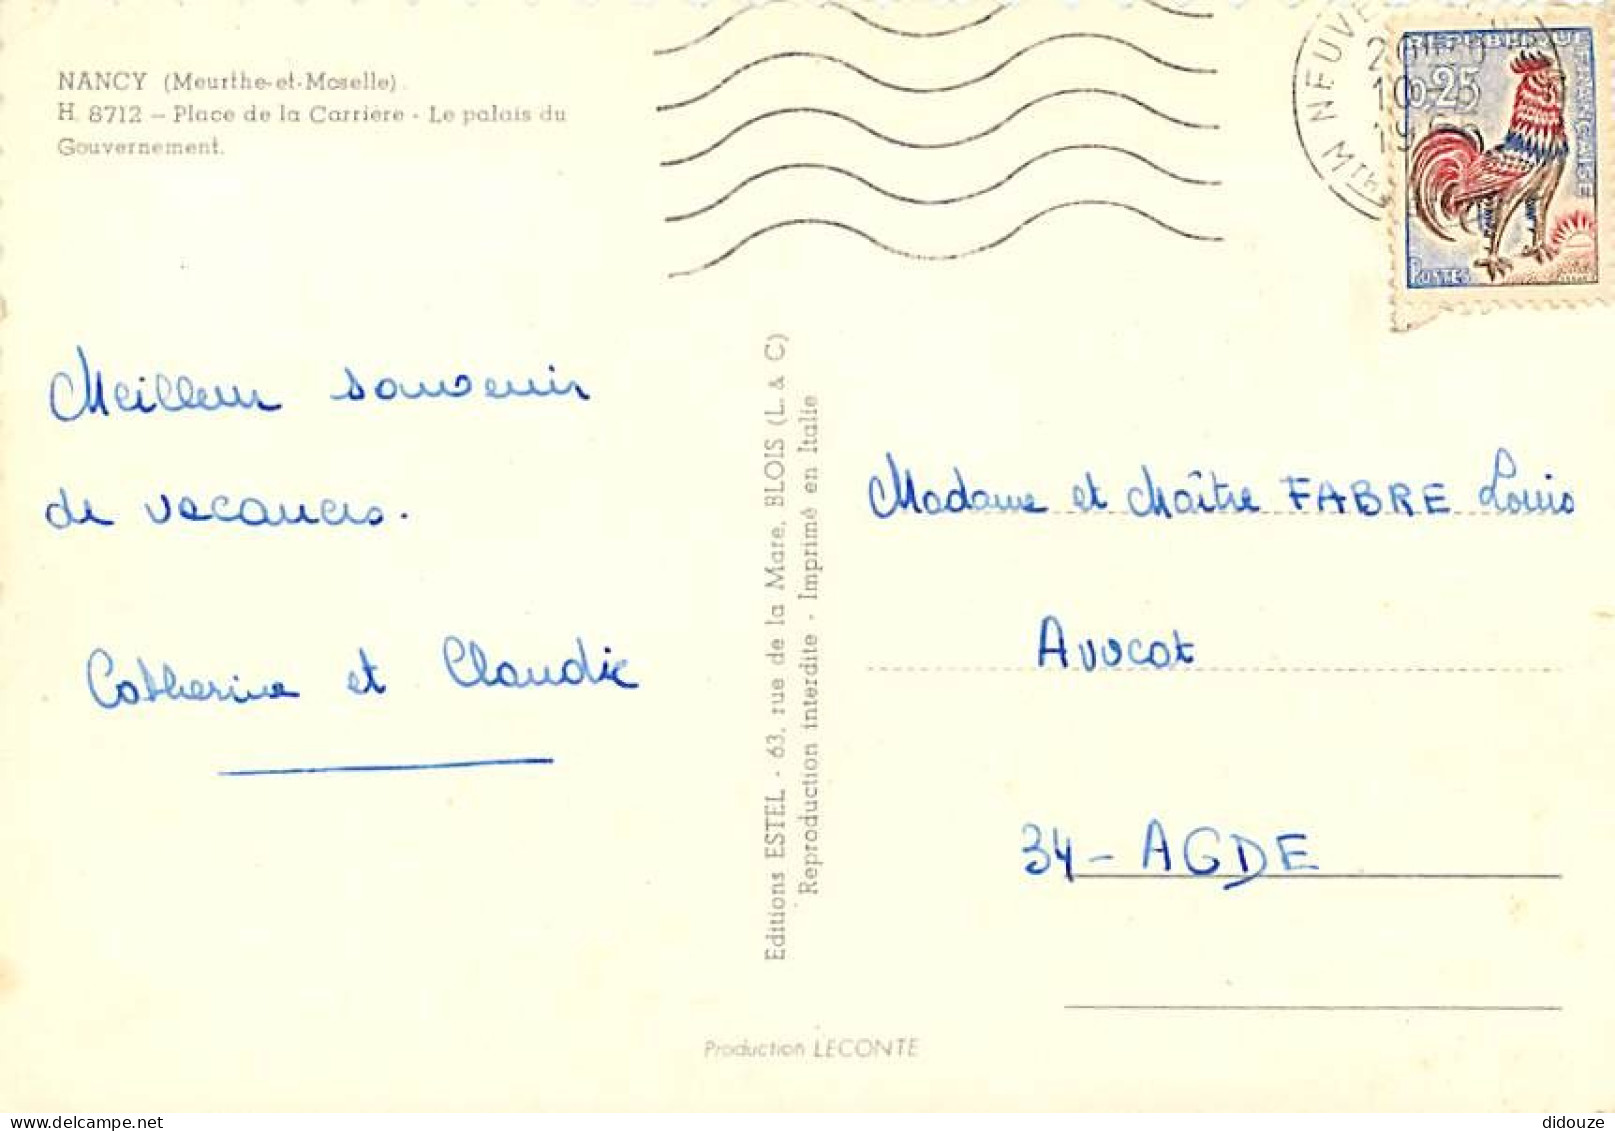 NANCY (Meurthe-et-Moselle).
H. 8712 – Place de la Carrière - Le palais du
Gouvernement.
20H30
10-
19
REPUBLIQUE FRANÇAISE
0,25
POSTES
Meilleur souvenir
de vacances.
Catherine et Claudie
Editions ESTEL - 63, rue de la Mare, BLOIS (L. & C)
Reproduction interdite - Imprimé en Italie
Madame et Maître FABRE Louis
Avocat
34 - AGDE
Production LECONTE
delcampe.net
didouze